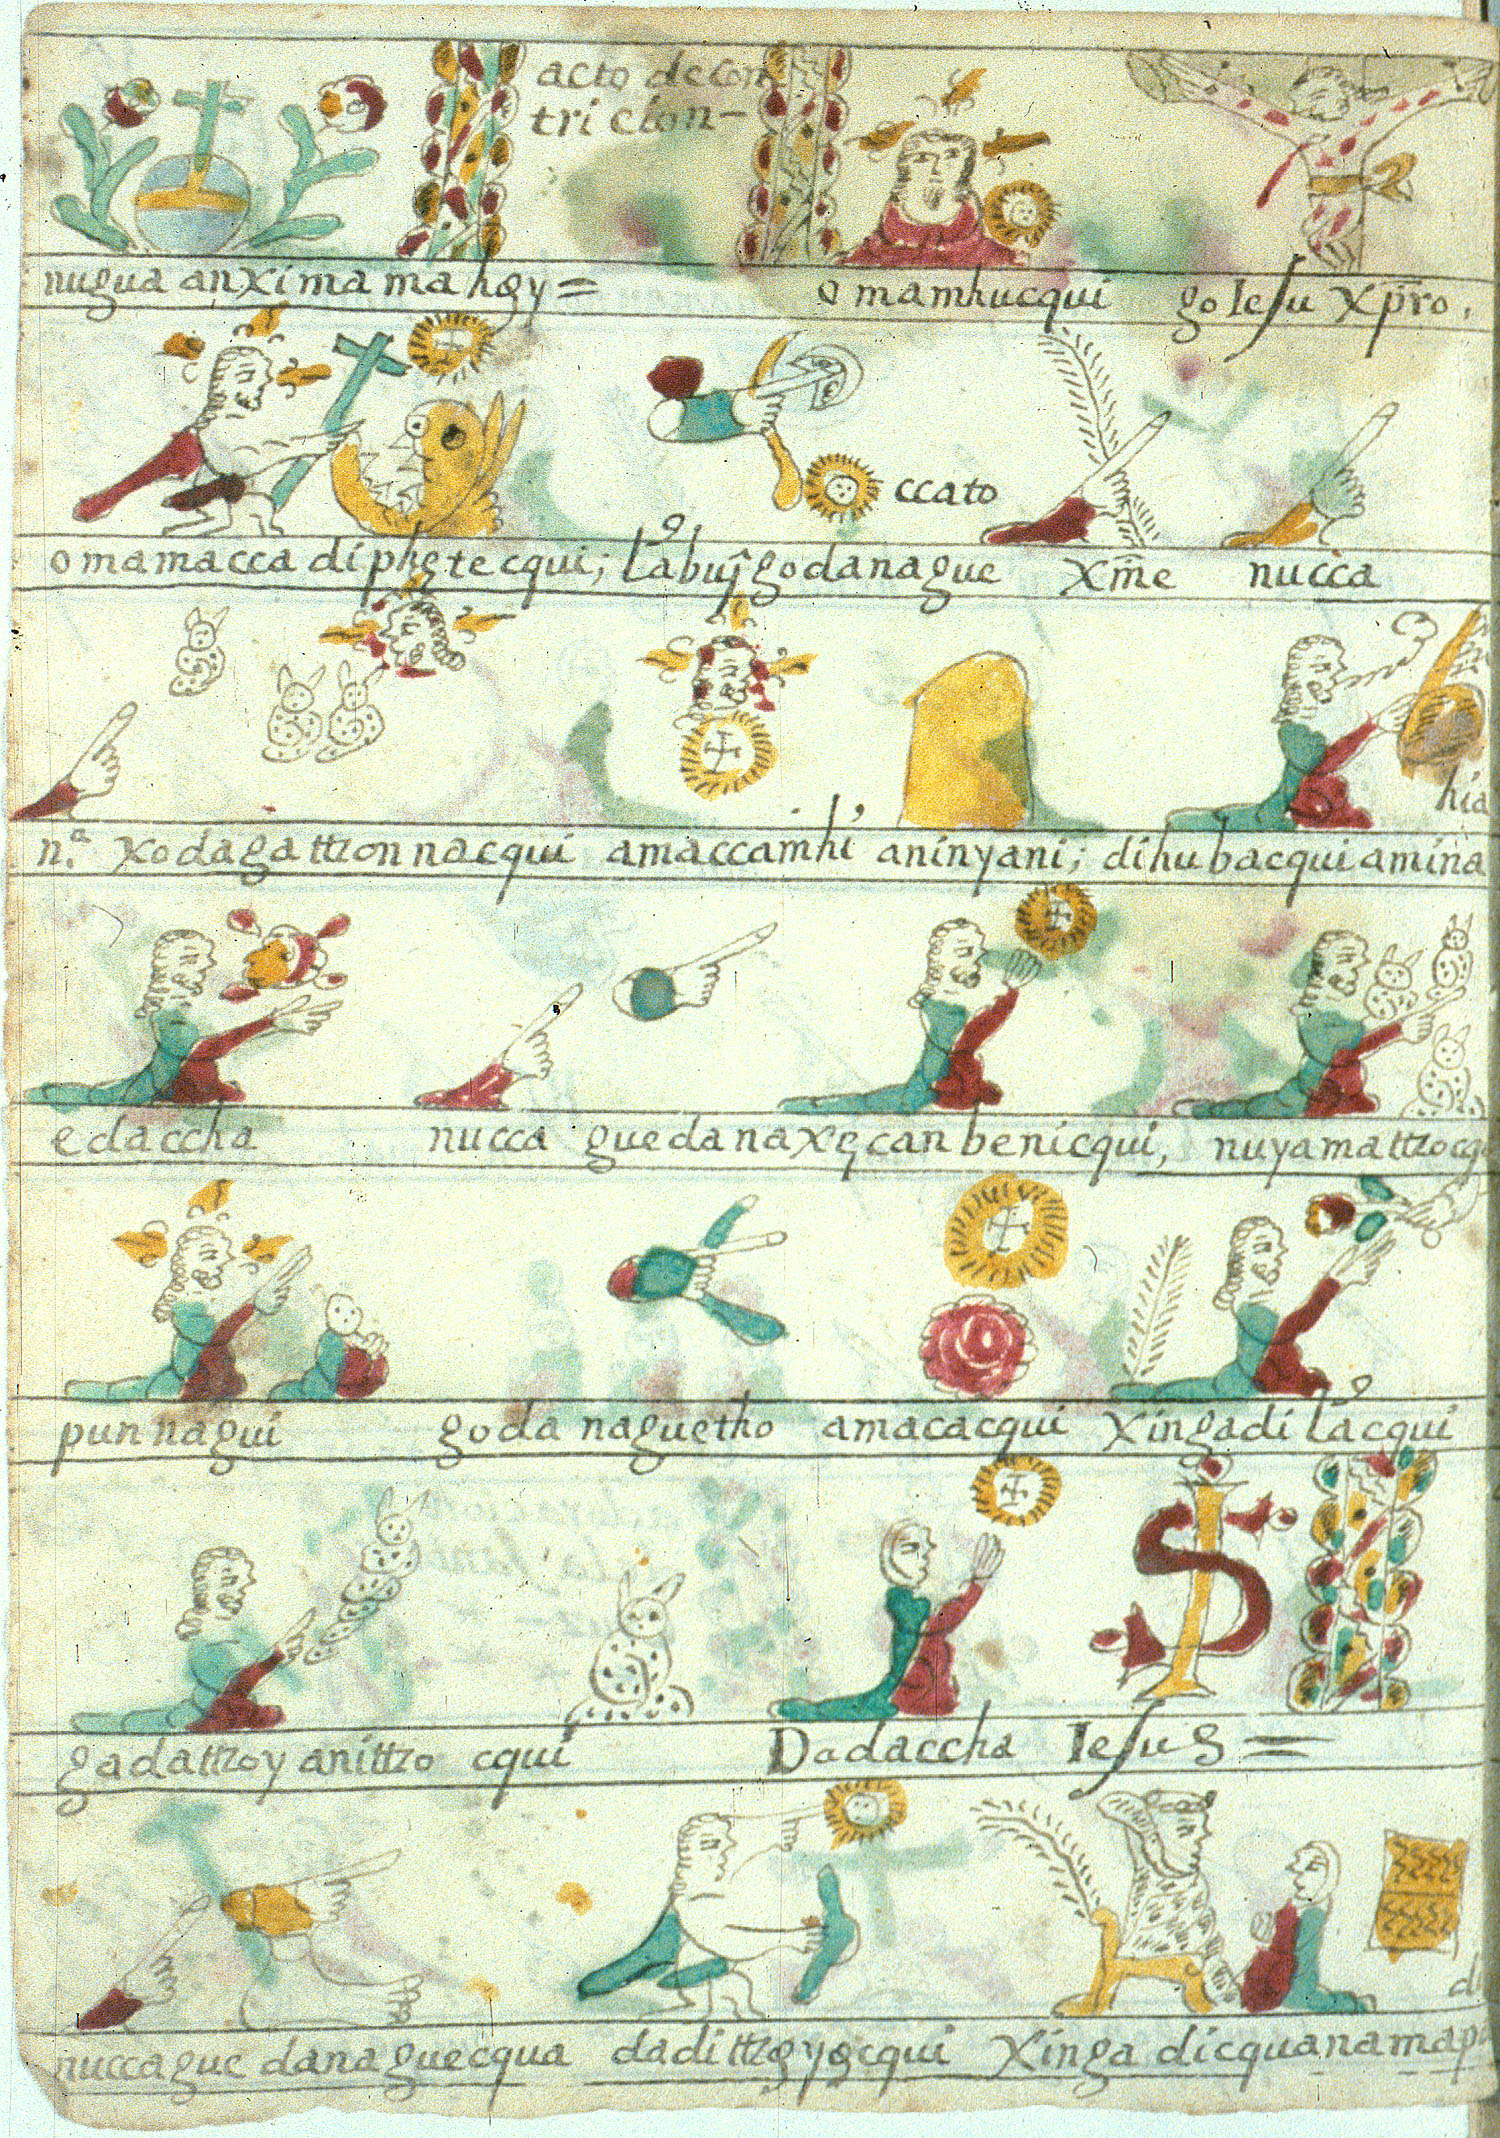 acto de con
tricion-
nugua anximamahęy =
o mamhucqui go Iesu Xp̄ro,
ccato
omamacca diphętecqui; lạbuy̑godanague Xm̃e nuccà
hia
n.ª xodagattzonnacqui amaccamhi aninyani; dihubacqui amina
edaccha nucca guedanaxęcanbenicqui, nuyamattzocq
punnagui goda naguetho amacacqui xingadi lacqui
gadattzoyanittzo cqui Dadaccha Iesus =
nuccague danaguecqua dadittzęyęcqui xinga dicquanamap